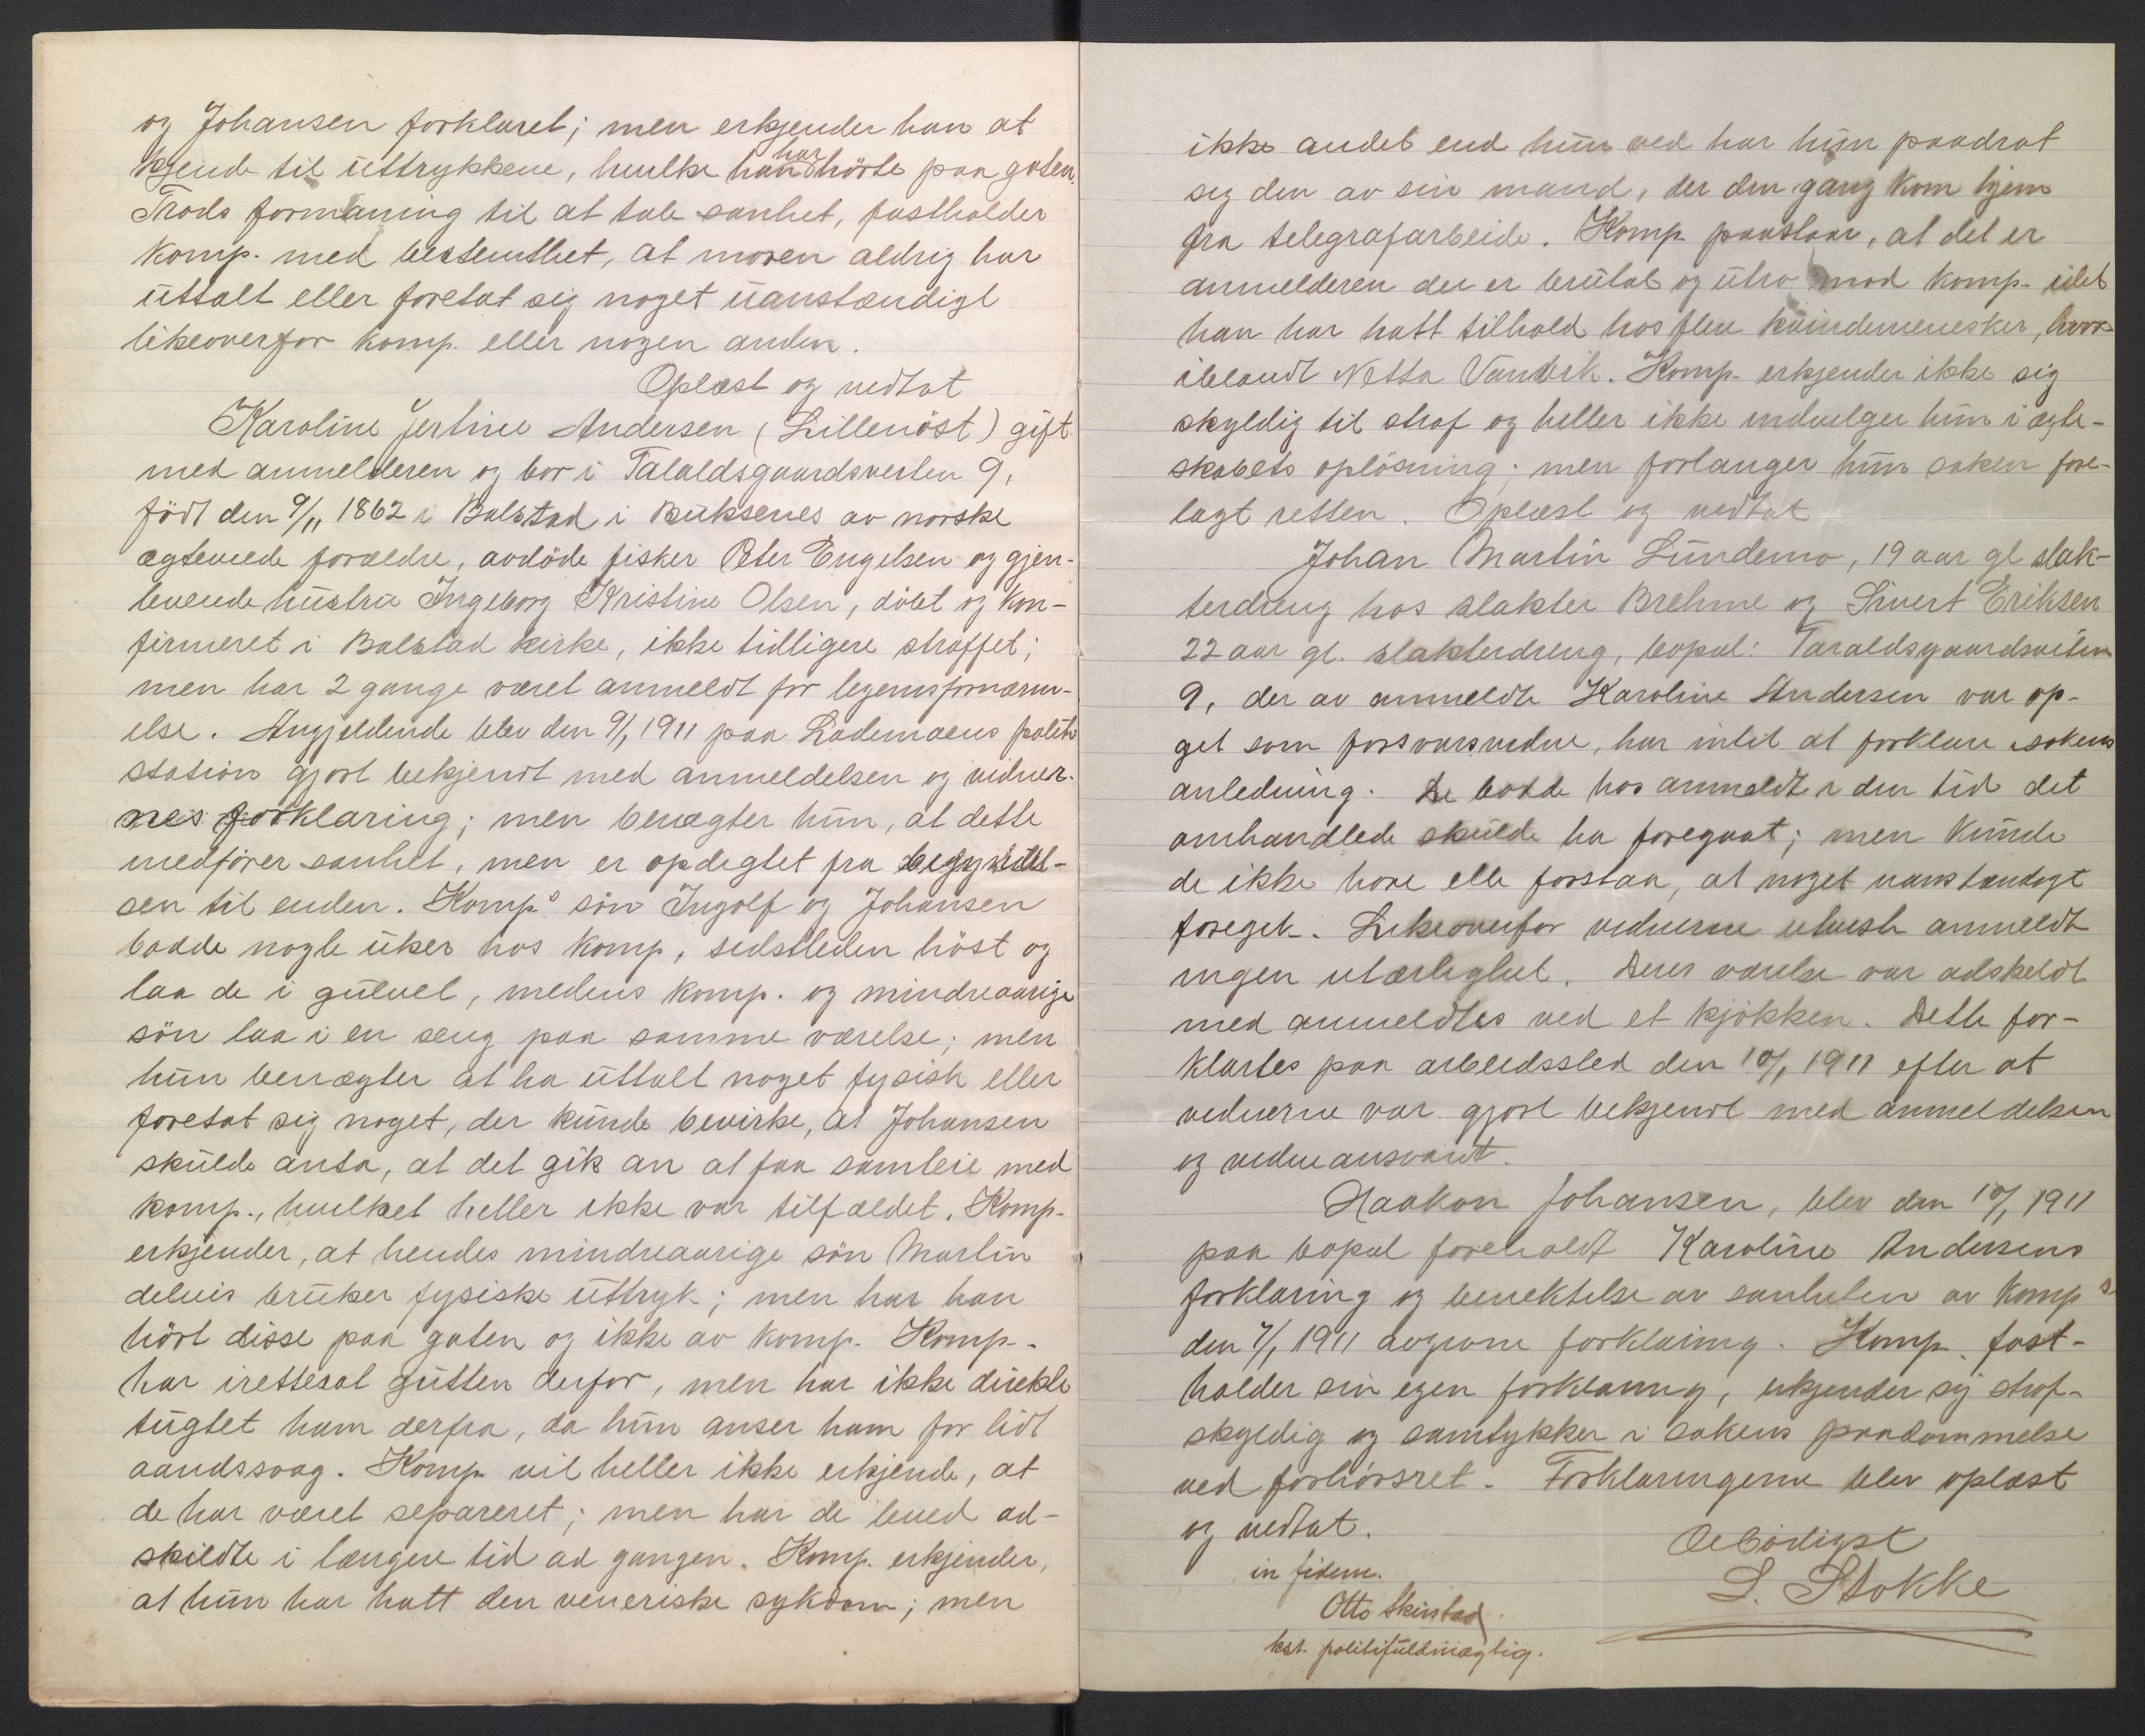 og Johansen forklaret; men erkjender han at
kjende til uttrykkene, hvilke han har hørte paa gaten.
Trods formaning til at tale sanhet, fastholder
komp. med bestemthet, at moren aldrig har
uttalt eller foretat sig noget uanstændigt
likeoverfor komp. eller nogen anden.
Oplæst og vedtat
Karoline Jertine Andersen (Lillenöst) gift
med anmelderen og bor i Taraldsgaardsveiten 9,
född den 9/11 1862 i Balstad i Buksenes av norske
ægteviede forældre, avdöde fisker Peter Engelsen og gjen-
levende hustru Ingeborg Kristine Olsen, döbt og kon-
firmeret i Balstad kirke, ikke tidligere straffet;
men har 2 gange været anmeldt for legemsfornærm-
else. Angjeldende blev den 9/1 1911 paa Lademoens politi
station gjort bekjendt med anmeldelsen og vidner-
nes forklaring; men benægter hun, at dette
medförer sanhet, men er opdigtet fra begyndel-
sen til enden. Komps sön Ingolf og Johansen
bodde nogle uker hos komp, sidstleden höst og
laa de i gulvet, medens komp. og mindreaarige
sön laa i en seng paa samme værelse; men
hun benægter at ha uttalt noget fysisk eller
foretat sig noget, der kunde bevirke, at Johansen
skulde anta, at det gik an at faa samleie med
komp., hvilket heller ikke var tilfældet. Komp.
erkjender, at hendes mindreaarige sön Martin
delvis bruker fysiske uttryk; men har han
hört disse paa gaten og ikke av komp. Komp.
har irettesat gutten derfor, men har ikke direkte
tugtet ham derfra, da hun anser ham for lidt
aandssvag. Komp vil heller ikke erkjende, at
de har været separeret; men har de leved ad-
skildte i længere tid ad gangen. Komp. erkjender,
at hun har hatt den veneriske sykdom; men
ikke andet end hun ved har hun paadrat
sig den av sin mand, der den gang kom hjem
fra telegrafarbeide. Komp paastaar, at det er
anmelderen der er brutal og utro mod komp. idet
han har hatt tilhold hos flere kvindemenesker, hvor
iblandt Netta Vandvik. Komp. erkjender ikke sig
skyldig til straf og heller ikke indvilger hun i ægte-
skabets oplösning; men forlanger hun saken fore-
lagt retten. Oplæst og vedtat
Johan Martin Lundemo, 19 aar gl slak-
terdreng hos slakter Brehme og Sivert Eriksen
22 aar gl. slakterdreng, bopæl: Taraldsgaardsveiten
9, der av anmeldte Karoline Andersen var op-
get som forsvarsvidne, har intet at forklare i sakens
anledning. De bodde hos anmeldte i den tid det
omhandlede skulde ha foregaat; men kunde
de ikke høre elle forstaa, at noget uanstændigt
foregik. Likeoverfor vidnerne utviste anmeldt
ingen utærlighet. Deres værelse var adskeldt
med anmeldtes ved et kjökken. Dette for-
klartes paa arbeidssted den 10/1 1911 efter at
vidnerne var gjort bekjendt med anmeldelsen
og vidneansvaret.
Haakon Johansen, blev den 10/1 1911
paa bopæl foreholdt Karoline Andersens
forklaring og benektelse av sanheten av komp s
den 7/1 1911 avgivne forklaring. Komp. fast-
holder sin egen forklaring, erkjender sig straf-
skyldig og samtykker i sakens paadømmelse
ved forhörsret. Forklaringerne blev oplæst
og vedtat.
Ærbödigst
L. Stokke
in fidem.
Otto Skirstad
kst. politifuldmægtig.